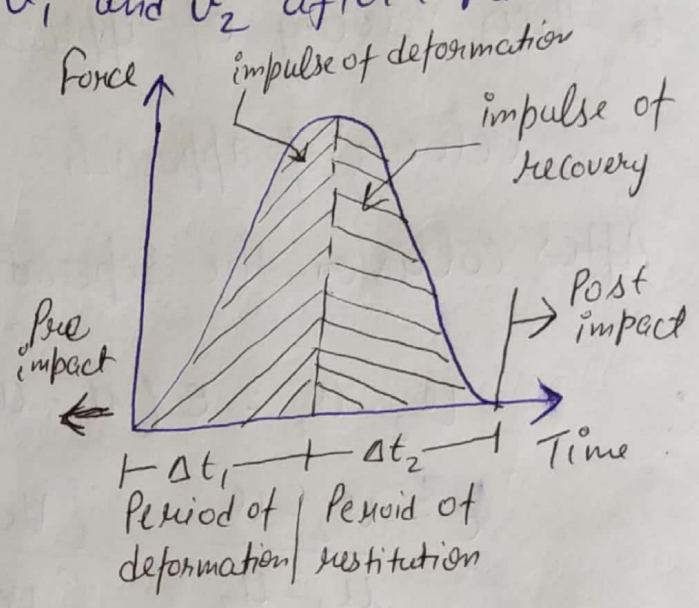 and v₂ after
Force
impulse of deformation
impulse of
recovery
Pre
impact
Post
impact
Δt₁
Δt₂
Time
Period of
deformation
Peroid of
restitution